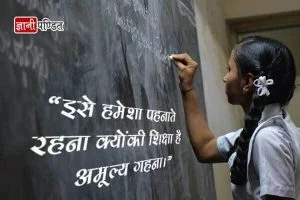 ज्ञानीपण्डित
“इसे हमेशा पहनाते
रहना क्योंकी शिक्षा है
अमूल्य गहना।”